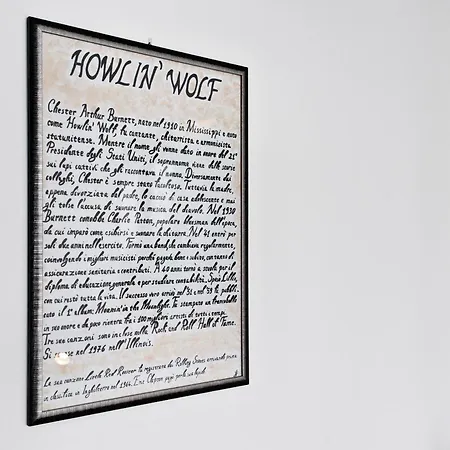 HOWLIN' WOLF
Chester Arthur Burnett, nato nel 1910 in Mississippi e noto
come Howlin' Wolf, fu cantante, chitarrista e armonicista
statunitense. Mentre il nome gli venne dato in onore del 21°
Presidente degli Stati Uniti, il soprannome viene dalle storie
sui lupi cattivi che gli raccontava il nonno. Diversamente dai
colleghi, Chester è sempre stato facoltoso. Tuttavia la madre,
appena divorziata dal padre, lo caccia di casa adolescente e mai
gli tolse l'accusa di suonare la musica del diavolo. Nel 1930
Burnett conobbe Charlie Patton, popolare bluesman dell'epoca,
da cui imparò come esibirsi e suonare la chitarra. Nel 41 entrò per
soli due anni nell'esercito. Formò una band, che cambiava regolarmente,
coinvolgendo i migliori musicisti perché pagati bene e subito, con tanto di
assicurazione sanitaria e contributi. A 40 anni tornò a scuola per il
diploma di educazione generale e per studiare contabilità. Sposò Lillie,
con cui restò tutta la vita. Il successo vero arrivò nel 51 e nel 59 fu pubbli
cato il 1° album: Moanin' in the Moonlight. Fu stampato un francobollo
in suo onore e da poco rientra tra i 100 migliori artisti di tutti i tempi.
Tre sue canzoni sono incluse nella Rock and Roll Hall of Fame.
Si spense nel 1976 nell'Illinois.
La sua canzone Little Red Rooster fu registrata dai Rolling Stones arrivando prima
in classifica in Inghilterra nel 1964. Eric Clapton pagò per la sua lapide